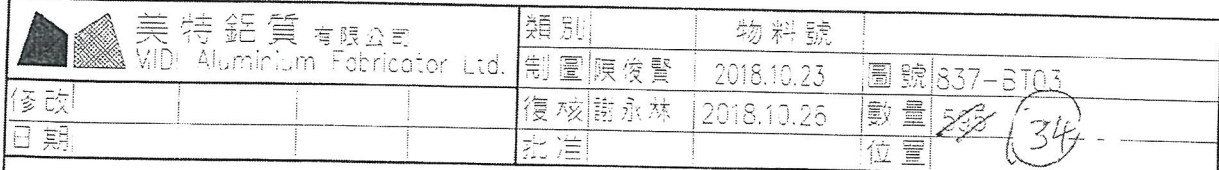 美特鋁質有限公司
MIDI Aluminium Fabricator Ltd.
類別 物料號
制圖 陳俊賢 2018.10.23 圖號 837-BT03
修改 復核 謝永林 2018.10.26 數量 34
日期 批准 位置